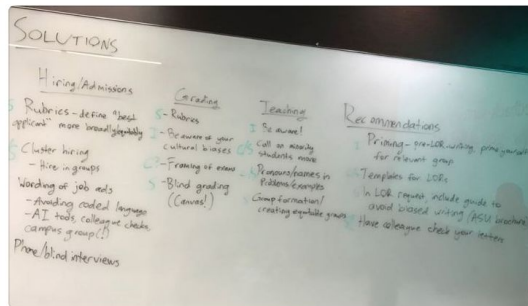 SOLUTIONS
Hiring/Admissions
S Rubrics - define "best
applicant" more broadly
S Cluster hiring
- Hire in groups
Wording of job ads
- Avoiding coded language
- AI tools, colleague checks,
campus group(!)
Phone/blind interviews
Grading
S - Rubrics
I - Be aware of your
cultural biases
- Framing of exams
S - Blind grading
(Canvas!)
Teaching
I Be aware!
C/S Call on minority
students more
- Pronouns/names in
problems/examples
Group formation/
creating equitable groups
Recommendations
I Priming - pre-LOR writing, prime yourself
for relevant group
Templates for LORs
In LOR request, include guide to
avoid biased writing (ASU brochure)
Have colleague check your letters